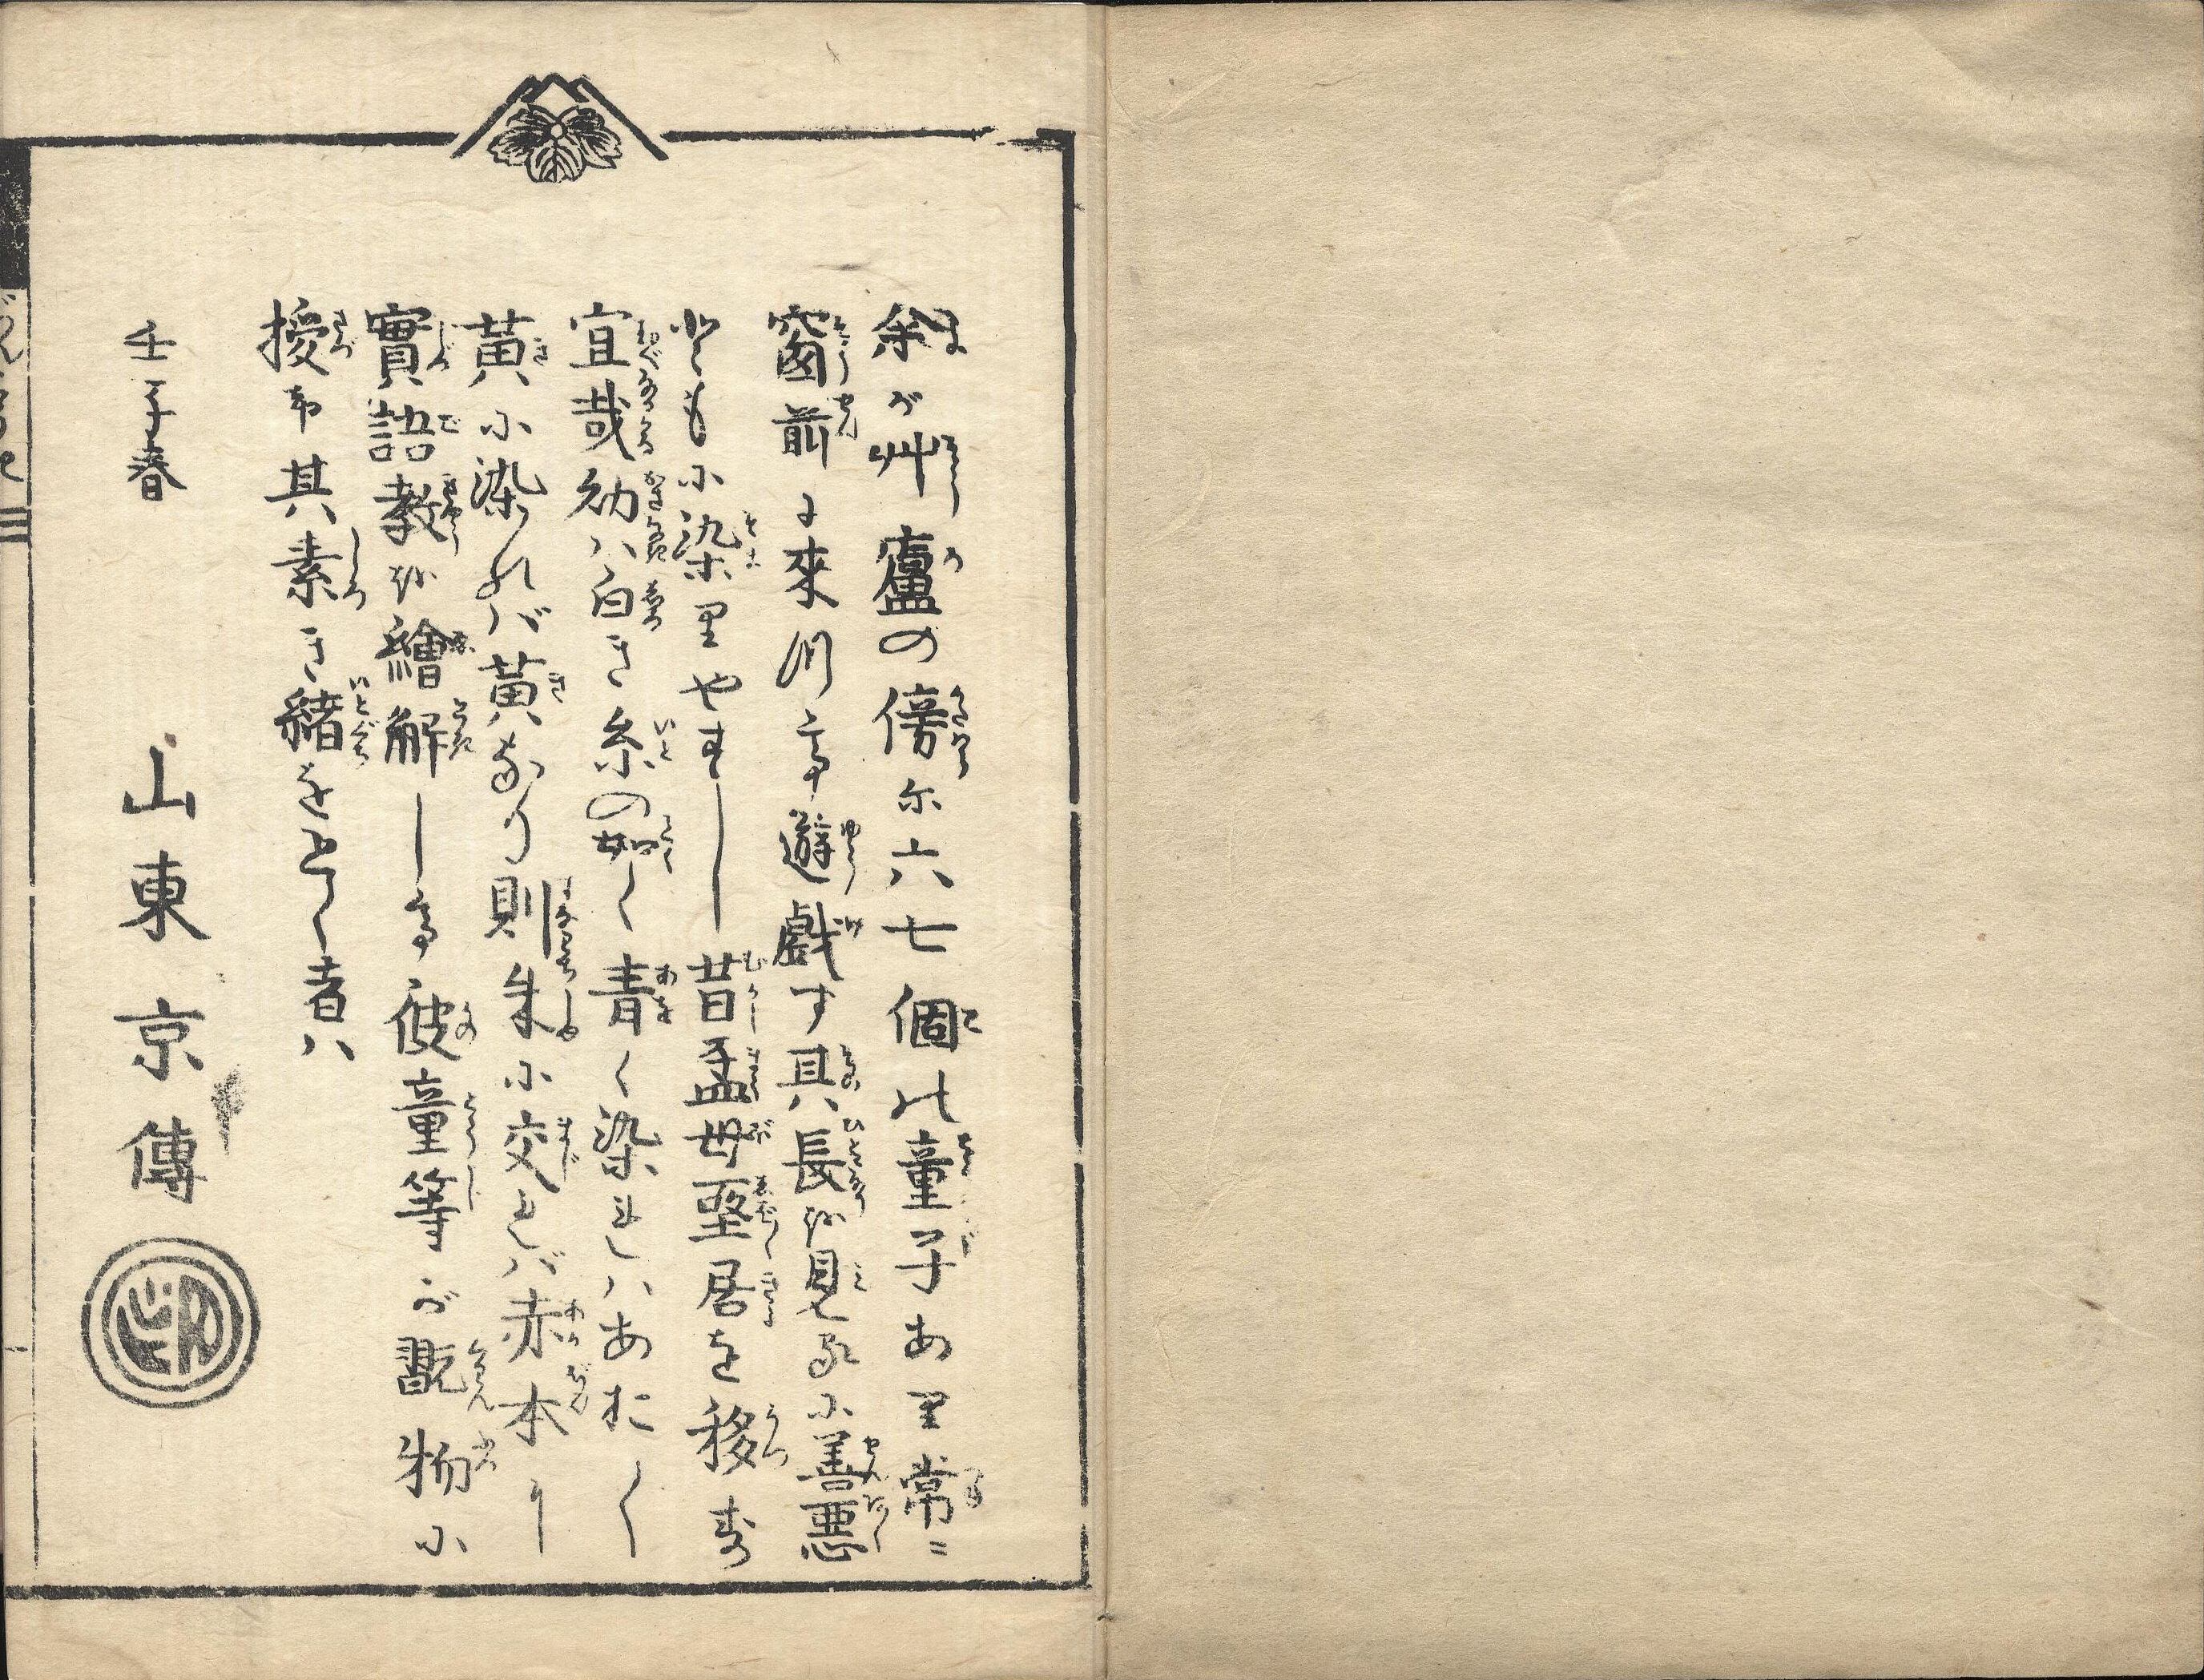 余が艸廬の傍に六七個の童子あり常ニ
窗前に來りて遊戯す其長を見るに善悪
ともに染りやすし昔孟母堅居を移す
宜哉幼ハ白き糸の如く青く染れハあおし
黄に染れバ黄なり則朱に交れバ赤本り
實語教を繪解して彼童等が翫物に
授て其素き緒をとく者ハ
壬子春
山東京傳